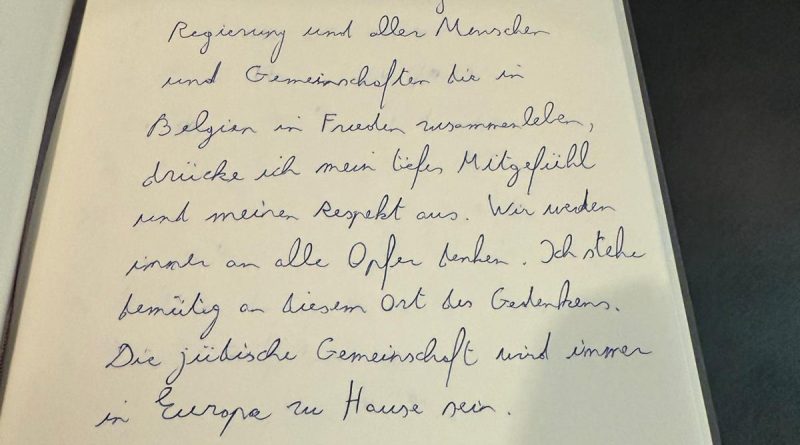 Regierung und aller Menschen
und Gemeinschaften die in
Belgien in Frieden zusammenleben,
drücke ich mein tiefes Mitgefühl
und meinen Respekt aus. Wir werden
immer an alle Opfer denken. Ich stehe
demütig an diesem Ort des Gedenkens.
Die jüdische Gemeinschaft wird immer
in Europa zu Hause sein.